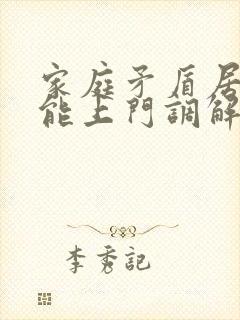 家庭矛盾居
能上門調解
李秀記